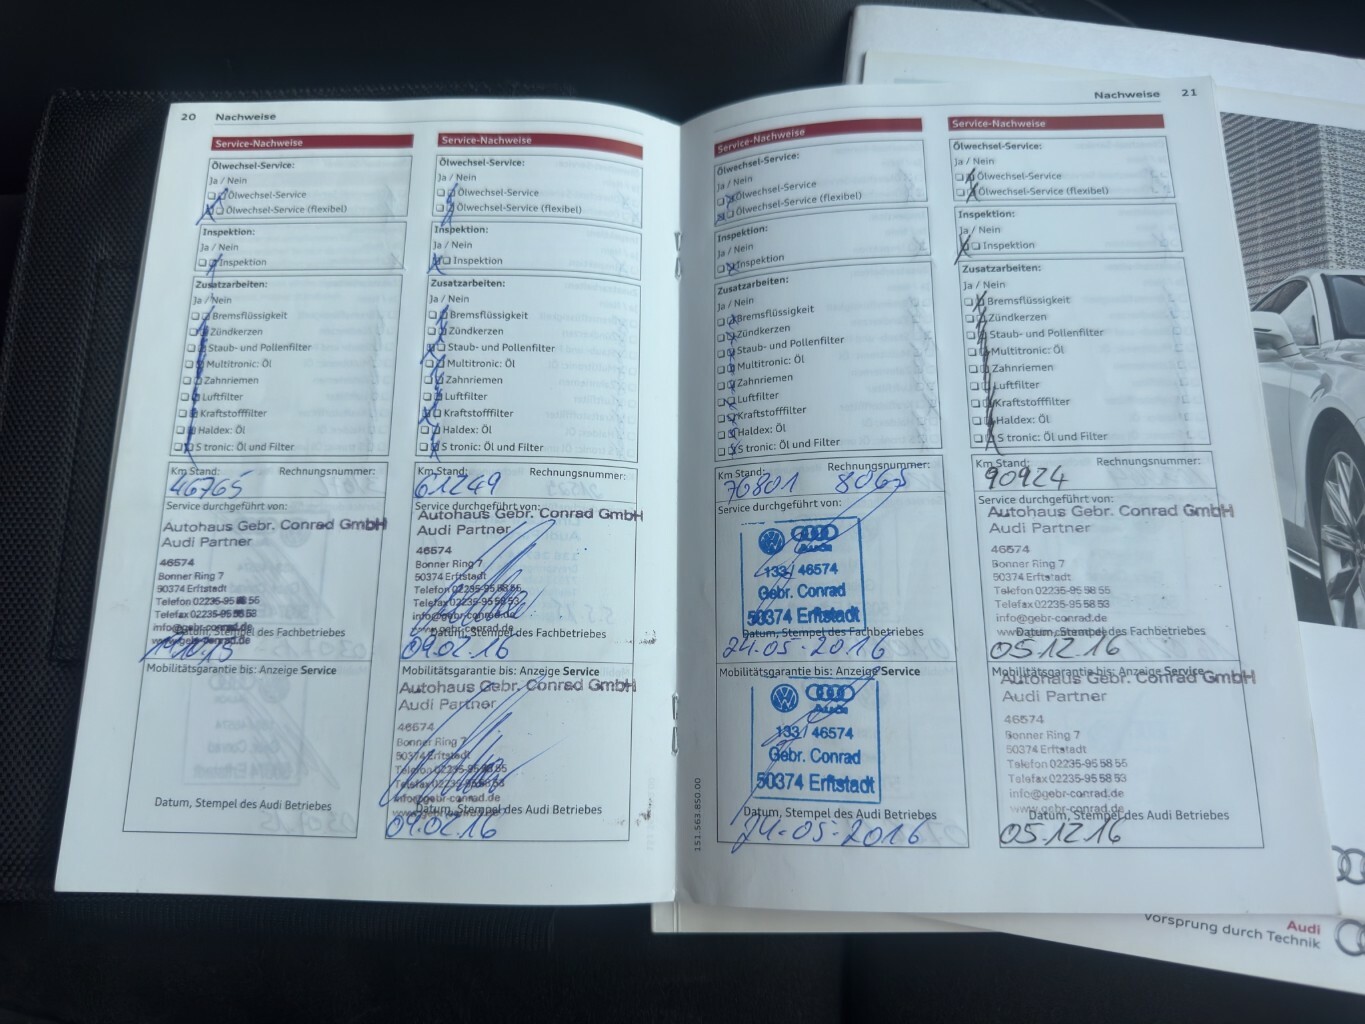 20 Nachweise
Service-Nachweise
Ölwechsel-Service:
Ja / Nein
Ölwechsel-Service
Ölwechsel-Service (flexibel)
Inspektion:
Ja / Nein
Inspektion
Zusatzarbeiten:
Ja / Nein
Bremsflüssigkeit
Zündkerzen
Staub- und Pollenfilter
Multitronic: Öl
Zahnriemen
Luftfilter
Kraftstofffilter
Haldex: Öl
S tronic: Öl und Filter
Km Stand: Rechnungsnummer:
46765
Service durchgeführt von:
Autohaus Gebr. Conrad GmbH
Audi Partner
46574
Bonner Ring 7
50374 Erftstadt
Telefon 02235-95 58 55
Telefax 02235-95 58 53
info@gebr-conrad.de
www.gebr-conrad.de
Datum, Stempel des Fachbetriebes
Mobilitätsgarantie bis: Anzeige Service
Datum, Stempel des Audi Betriebes
Service-Nachweise
Ölwechsel-Service:
Ja / Nein
Ölwechsel-Service
Ölwechsel-Service (flexibel)
Inspektion:
Ja / Nein
Inspektion
Zusatzarbeiten:
Ja / Nein
Bremsflüssigkeit
Zündkerzen
Staub- und Pollenfilter
Multitronic: Öl
Zahnriemen
Luftfilter
Kraftstofffilter
Haldex: Öl
S tronic: Öl und Filter
Km Stand: Rechnungsnummer:
61249
Service durchgeführt von:
Autohaus Gebr. Conrad GmbH
Audi Partner
46574
Bonner Ring 7
50374 Erftstadt
Telefon 02235-95 58 55
Telefax 02235-95 58 53
info@gebr-conrad.de
www.gebr-conrad.de
Datum, Stempel des Fachbetriebes
09.02.16
Mobilitätsgarantie bis: Anzeige Service
Autohaus Gebr. Conrad GmbH
Audi Partner
46574
Bonner Ring 7
50374 Erftstadt
Telefon 02235-95 58 55
Telefax 02235-95 58 53
info@gebr-conrad.de
www.gebr-conrad.de
Datum, Stempel des Audi Betriebes
09.02.16
Nachweise 21
Service-Nachweise
Ölwechsel-Service:
Ja / Nein
Ölwechsel-Service
Ölwechsel-Service (flexibel)
Inspektion:
Ja / Nein
Inspektion
Zusatzarbeiten:
Ja / Nein
Bremsflüssigkeit
Zündkerzen
Staub- und Pollenfilter
Multitronic: Öl
Zahnriemen
Luftfilter
Kraftstofffilter
Haldex: Öl
S tronic: Öl und Filter
Km Stand: Rechnungsnummer:
76801 8065
Service durchgeführt von:
Audi
133/ 46574
Gebr. Conrad
50374 Erftstadt
Datum, Stempel des Fachbetriebes
24-05-2016
Mobilitätsgarantie bis: Anzeige Service
Audi
133/ 46574
Gebr. Conrad
50374 Erftstadt
Datum, Stempel des Audi Betriebes
24-05-2016
151.563.850.00
Service-Nachweise
Ölwechsel-Service:
Ja / Nein
Ölwechsel-Service
Ölwechsel-Service (flexibel)
Inspektion:
Ja / Nein
Inspektion
Zusatzarbeiten:
Ja / Nein
Bremsflüssigkeit
Zündkerzen
Staub- und Pollenfilter
Multitronic: Öl
Zahnriemen
Luftfilter
Kraftstofffilter
Haldex: Öl
S tronic: Öl und Filter
Km Stand: Rechnungsnummer:
90924
Service durchgeführt von:
Autohaus Gebr. Conrad GmbH
Audi Partner
46574
Bonner Ring 7
50374 Erftstadt
Telefon 02235-95 58 55
Telefax 02235-95 58 53
info@gebr-conrad.de
www.gebr-conrad.de
Datum, Stempel des Fachbetriebes
05.12.16
Mobilitätsgarantie bis: Anzeige Service
Autohaus Gebr. Conrad GmbH
Audi Partner
46574
Bonner Ring 7
50374 Erftstadt
Telefon 02235-95 58 55
Telefax 02235-95 58 53
info@gebr-conrad.de
www.gebr-conrad.de
Datum, Stempel des Audi Betriebes
05.12.16
Audi
Vorsprung durch Technik